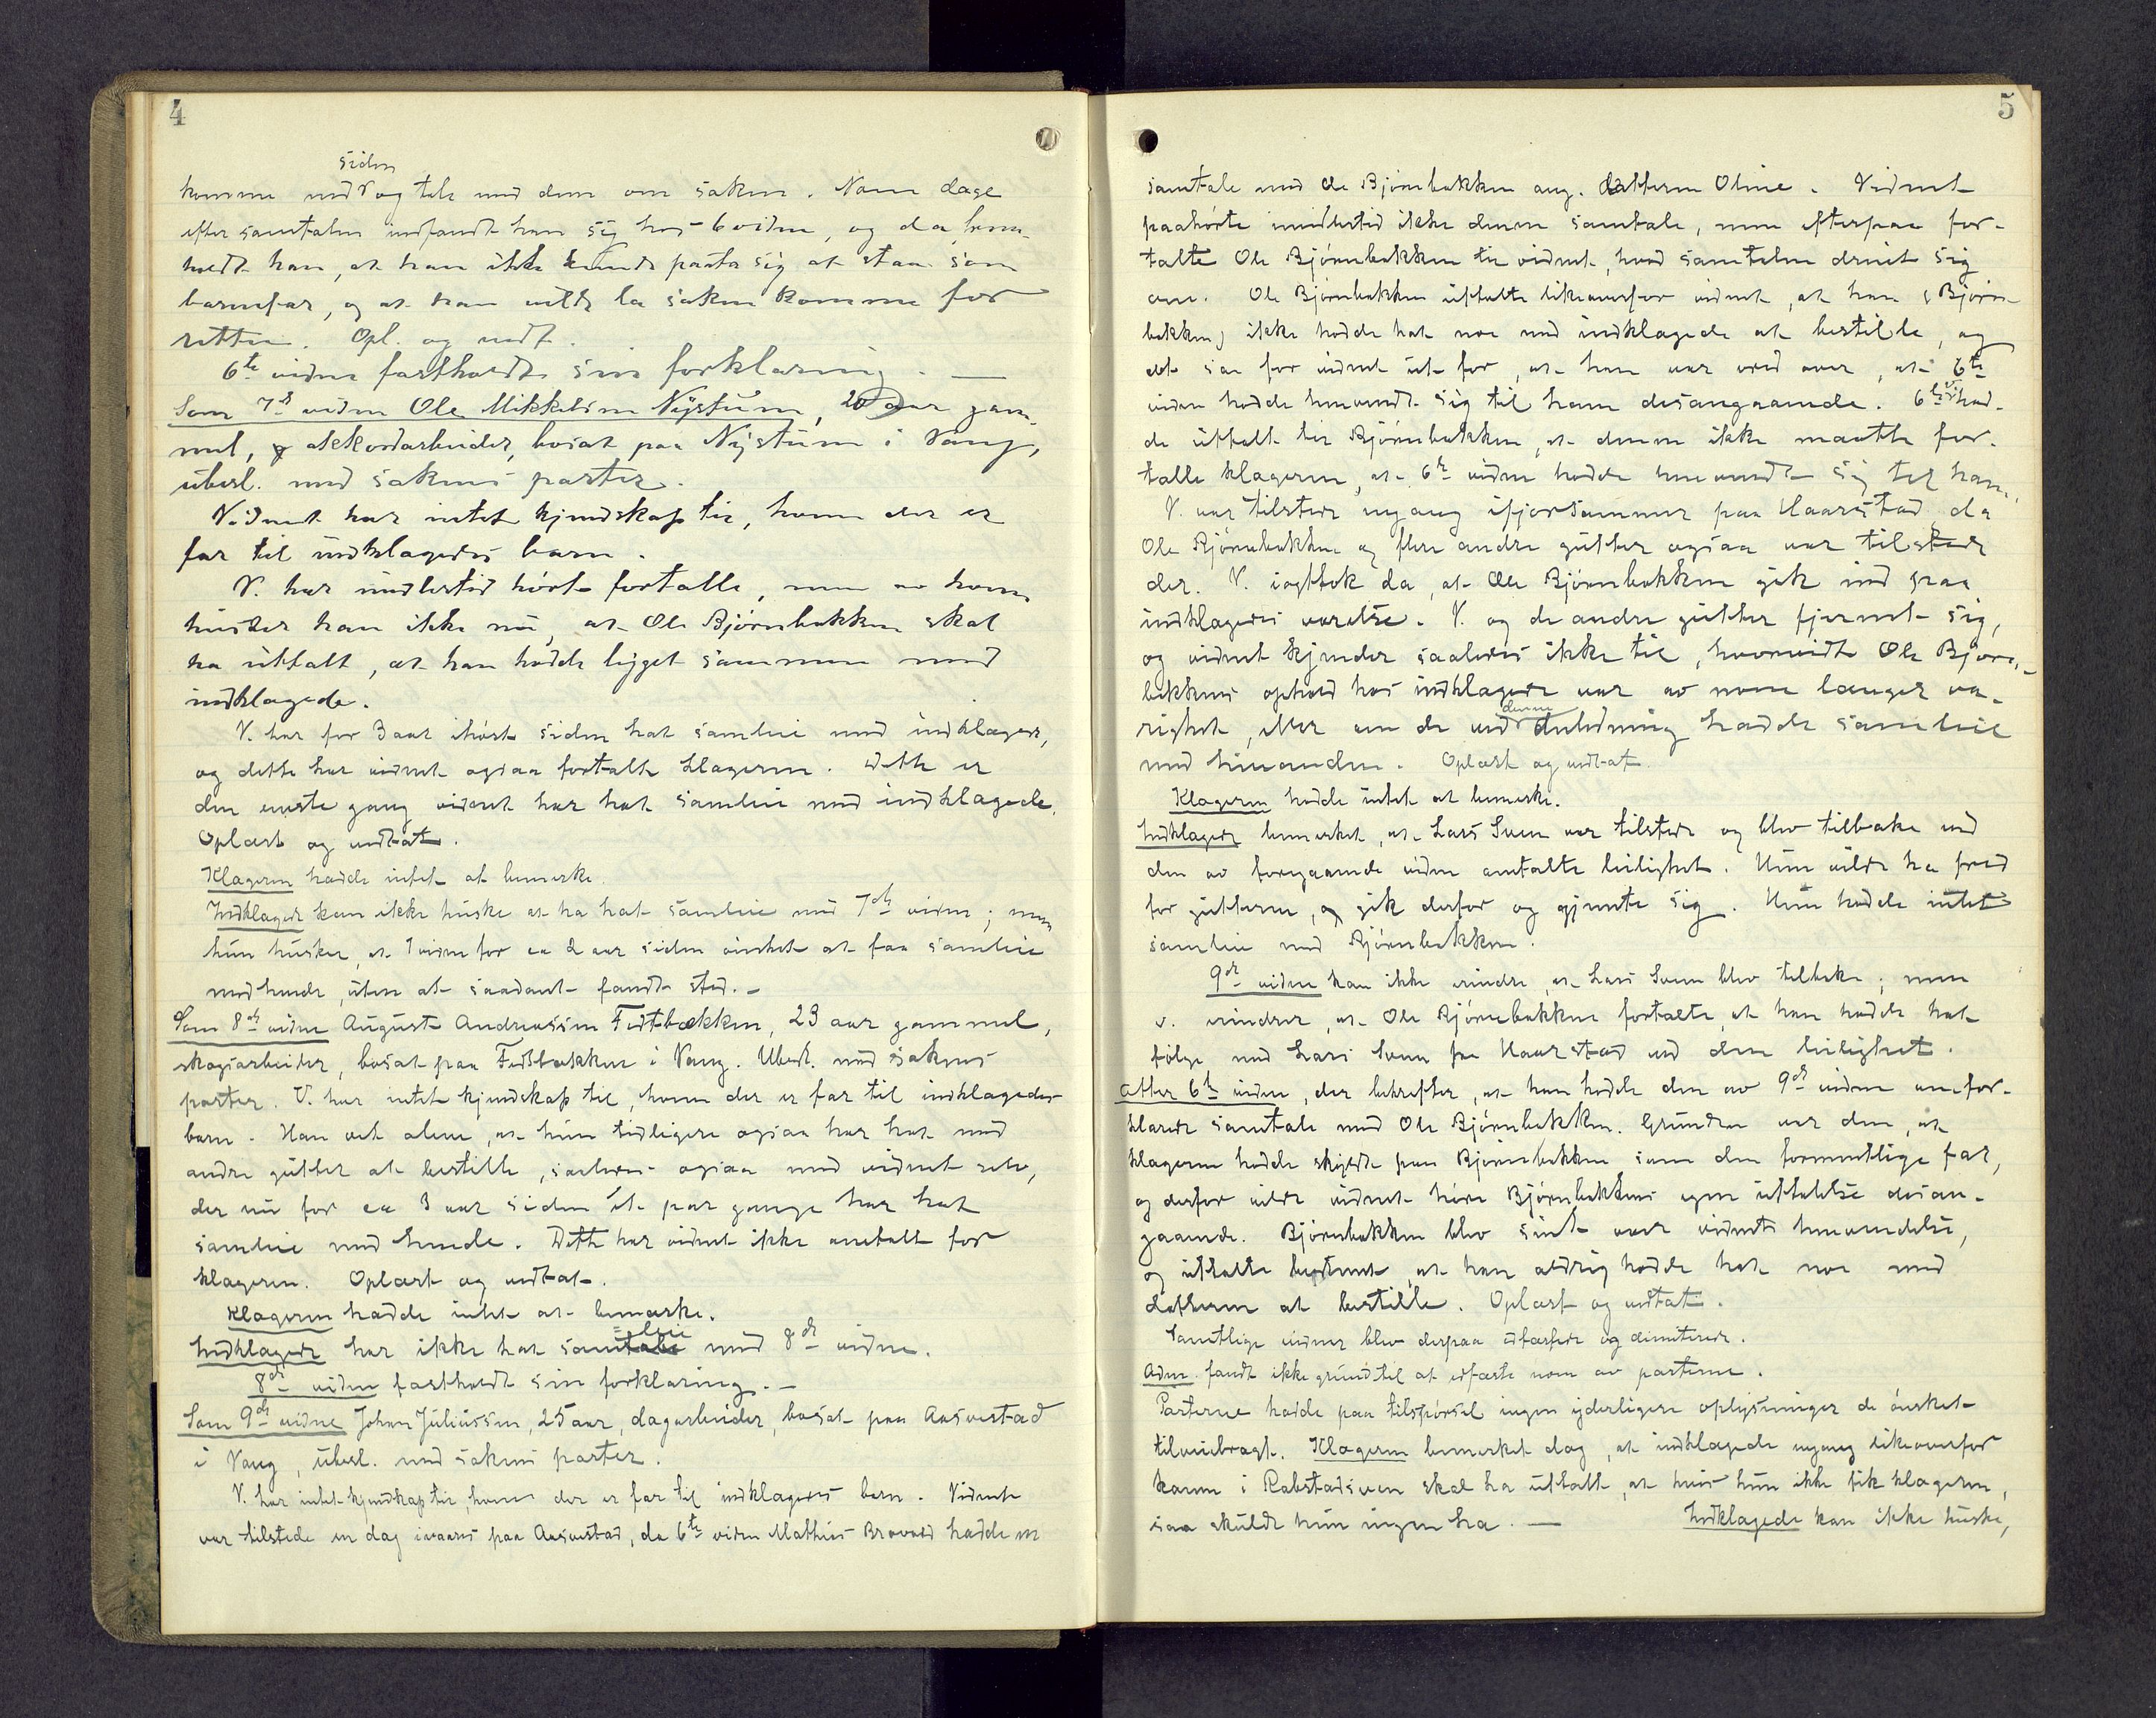 4
siden
komme ned og tale med dem om saken. Noen dage
efter samtalen indfandt han sig hos 6 vidne, og da frem-
holdt han, at han ikke kunde paata sig at staa som
barnefar, og at han vilde la saken komme for
retten. Opl. og vedt.
6te vidne fastholdt sin forklaring. —
Som 7de vidne Ole Mikkelsen Nystuen, 20 aar gam-
mel, akkordarbeider, bosat paa Nystuen i Vang,
ubesl. med sakens parter.
Vidnet har intet kjendskap til, hvem der er
far til indklagedes barn.
V. har imidlertid hørt fortalle, men av hvem
husker han ikke nu, at Ole Bjørnbekken skal
ha uttalt, at han hadde ligget sammen med
indklagede.
V. har for 3 aar ihøst siden hat samleie med indklagede,
og dette har vidnet ogsaa fortalt klageren. Dette er
den eneste gang vidnet har hat samleie med indklagede.
Oplæst og vedtat.
Klageren hadde intet at bemerke.
Indklagede kan ikke huske at ha hat samleie med 7de vidne; men
hun husker, at 7 vidne for ca 2 aar siden ønsket at faa samleie
med hende, uten at saadant fandt sted. –
Som 8de vidne August Andreassen Fedtbekken, 23 aar gammel,
skogsarbeider, bosat paa Fedtbekken i Vang. Ubesl. med sakens
parter. V. har intet kjendskap til, hvem der er far til indklagedes
barn. Han vet alene, at hun tidligere ogsaa har hat med
andre gutter at bestille, saaledes ogsaa med vidnet selv,
der nu for ca 3 aar siden et par gange har hat
samleie med hende. Dette har vidnet ikke omtalt for
klageren. Oplæst og vedtat.
Klageren hadde intet at bemerke.
=leie
Indklagede har ikke hat samtale med 8de vidne.
8de vidne fastholdt sin forklaring. –
Som 9de vidne Johan Juliussen, 25 aar, dagarbeider, bosat paa Aasvestad
i Vang, ubesl. med sakens parter.
V. har intet kjendskap til, hvem der er far til indklagedes barn. Vidnet
var tilstede en dag ivaares paa Aasvestad, da 6te vidne Mathias Bravold hadde en
5
samtale med Ole Bjørnbekken ang. datteren Oline. Vidnet
paahørte imidlertid ikke denne samtale, men efterpaa for-
talte Ole Bjørnbekken til vidnet, hvad samtalen dreiet sig
om. Ole Bjørnbekken uttalte likeoverfor vidnet, at han (Bjørn-
bekken) ikke hadde hat noe med indklagede at bestille, og
det saa for vidnet ut for, at han var vred over, at 6te
vidne hadde henvendt sig til ham desangaaende. 6te v. had-
de uttalt til Bjørnbekken, at denne ikke maatte for-
talle klageren, at 6te vidne hadde henvendt sig til ham.
V. var tilstede engang ifjorsommer paa Haarstad da
Ole Bjørnbekken og flere andre gutter ogsaa var tilstede
der. V. iagttok da, at Ole Bjørnbekken gik ind paa
indklagedes værelse. V. og de andre gutter fjernet sig,
og vidnet kjender saaledes ikke til, hvorvidt Ole Bjørn-
bekkens ophold hos indklagede var av noen længer va-
denne
righet, eller om de ved anledning hadde samleie
med hinanden. Oplæst og vedtat.
Klageren hadde intet at bemerke.
Indklagede bemerket, at Lars Sveen var tilstede og blev tilbake ved
den av foregaaende vidne omtalte leilighet. Hun vilde ha fred
for gutterne, og gik derfor og gjemte sig. Hun hadde intet
samleie med Bjørnbekken.
9de vidne kan ikke erindre, at Lars Sveen blev tilbake; men
v. erindrer, at Ole Bjørnbekken fortalte, at han hadde hat
følge med Lars Sveen fra Haarstad ved den leilighet.
Atter 6te vidne, der bekræfter, at han hadde den av 9de vidne omfor-
klarede samtale med Ole Bjørnbekken. Grunden var den, at
klageren hadde skyldt paa Bjørnbekken som den formentlige far,
og derfor vilde vidnet høre Bjørnbekkens egen uttalelse desan-
gaaende. Bjørnbekken blev sint over vidnets henvendelse,
og uttalte bestemt, at han aldrig hadde hat noe med
datteren at bestille. Oplæst og vedtat.
Samtlige vidner blev derpaa edfæstede og dimitterede.
Adm. fandt ikke grund til at edfæste noen av parterne.
Parterne hadde paa tilspørsel ingen yderligere oplysninger de ønsket
tilveiebragt. Klageren bemerket dog, at indklagede engang likeoverfor
i Rabstadsveen skal ha uttalt, at hvis hun ikke fik klageren,
saa skulde hun ingen ha. — Indklagede kan ikke huske,